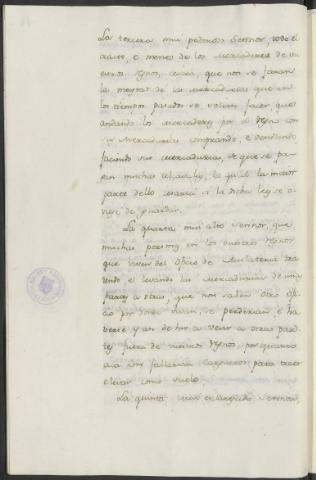 La tercera muy poderoso Sennor, todo el
trato, e meneo de los Mercaderes de vu
estros Regnos, cesara, que non se faran
las meytat de las mercadurias que en
los tiempos pasados se solian facer, que
andando los Mercaderes por el Regno con
sus Mercadurias comprando, e vendiendo
faciendo sus mercadurias, de que se pa
gan muchas alcavalas, lo qual la maior
parte dello cesaria si la dicha ley se o
viese de guardar.
La quarta mui alto Sennor, que
muchas personas en los vuestros Regnos
que viven del oficio de Mulateria tra
yendo e levando las Mercadurias de unas
partes a otras, que non saben otro ofi
cio por donde vivan, se perderian, e ha
verse yan de hir a vevir a otras par
tes fuera de vuestros Regnos, por quanto
aia non fallarian
 para traer
e levar como suelo
La quinta mui esclarecido Sennor,